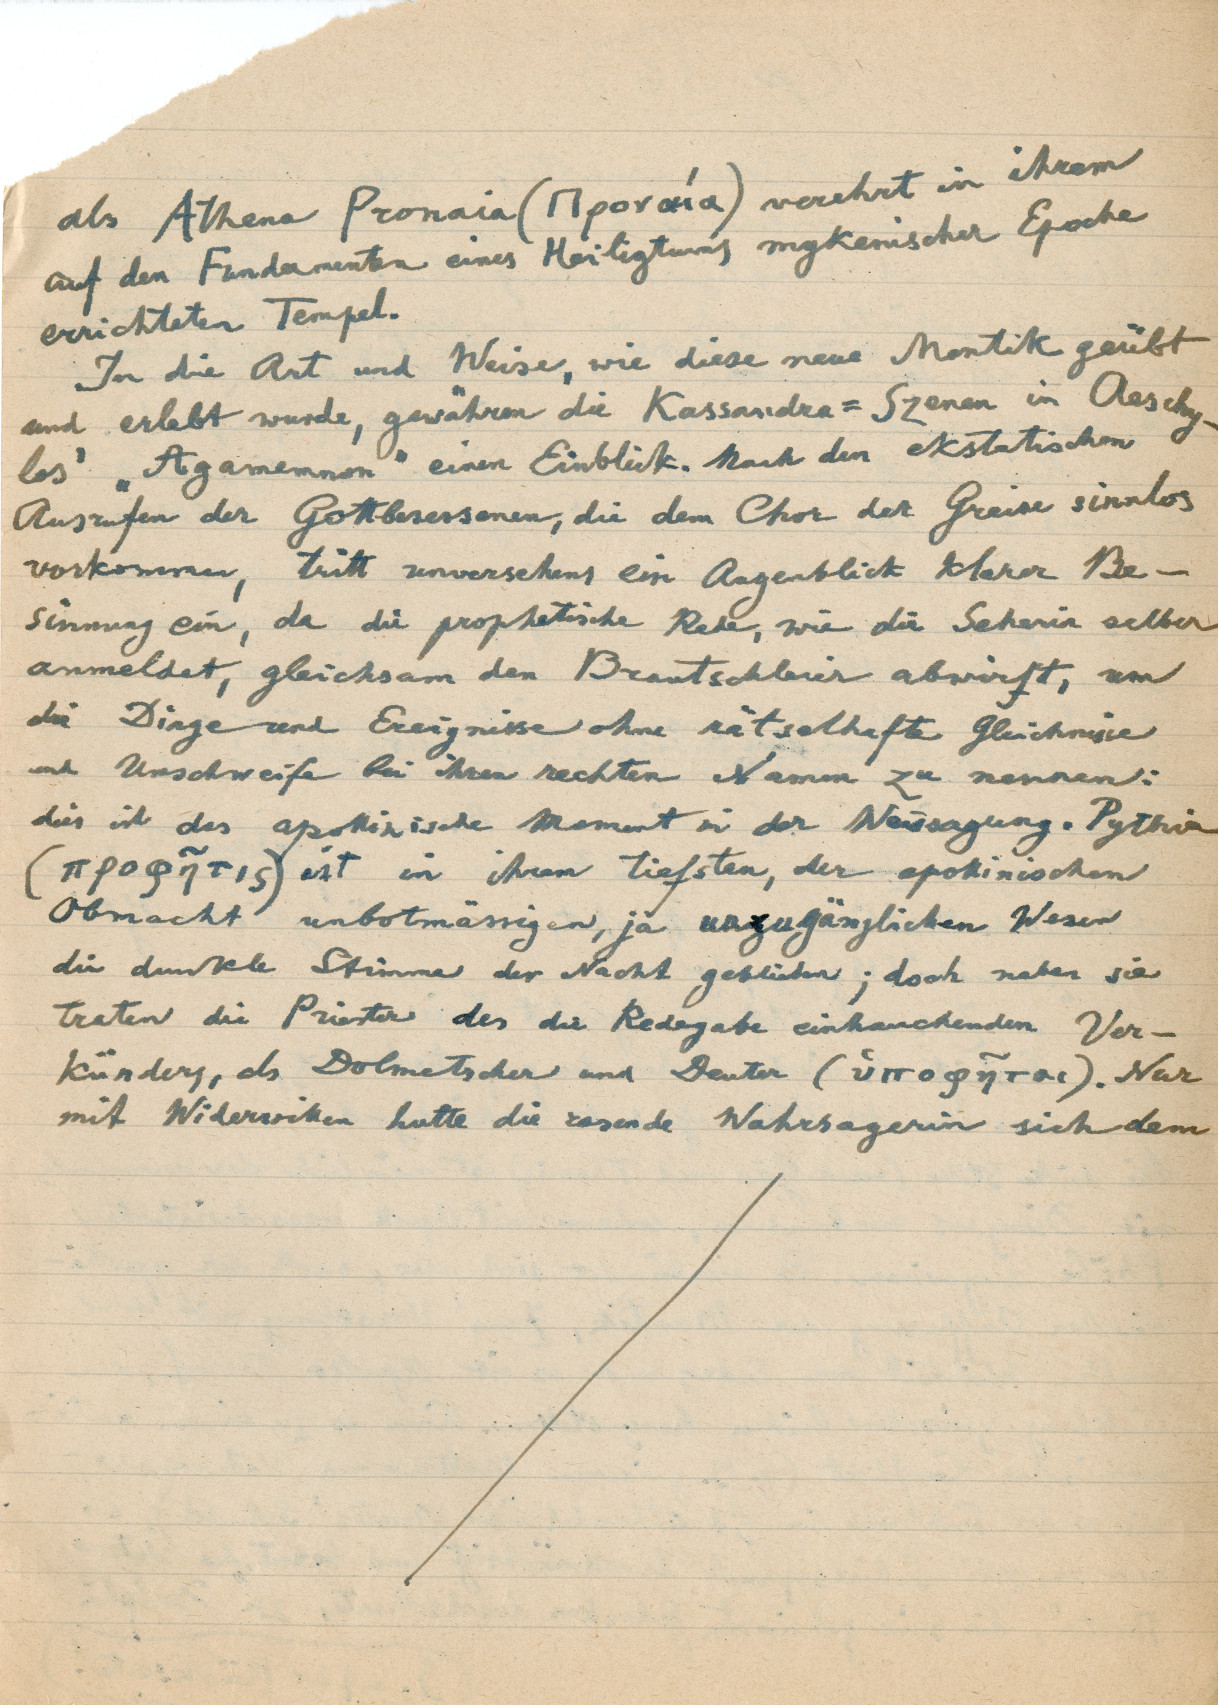 als Athena Pronaia (Προναία) verehrt in ihrem
auf den Fundamenten eines Heiligtums mykenischer Epoche
errichteten Tempel.
In die Art und Weise, wie diese neue Mantik geübt
und erlebt wurde, gewähren die Kassandra=Szenen in Aeschy-
los' „Agamemnon" einen Einblick. Nach den ekstatischen
Ausrufen der Gottbesessenen, die dem Chor der Greise sinnlos
vorkommen, tritt unversehens ein Augenblick klarer Be-
sinnung ein, da die prophetische Rede, wie die Seherin selber
anmeldet, gleichsam den Brautschleier abwirft, um
die Dinge und Ereignisse ohne rätselhafte Gleichnisse
und Umschweife bei ihren rechten Namen zu nennen:
dies ist das apollinische Moment in der Weissagung. Pythia
(προφῆτις) ist in ihrem tiefsten, der apollinischen
Obmacht unbotmässigen, ja unzugänglichen Wesen
die dunkle Stimme der Nacht geblieben; doch neben sie
traten die Priester des die Redegabe einhauchenden Ver-
künders, als Dolmetscher und Deuter (ὑποφῆται). Nur
mit Widerwillen hatte die rasende Wahrsagerin sich dem